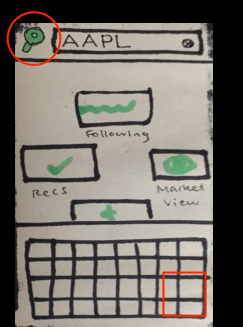 AAPL
Following
Recs
Market
View